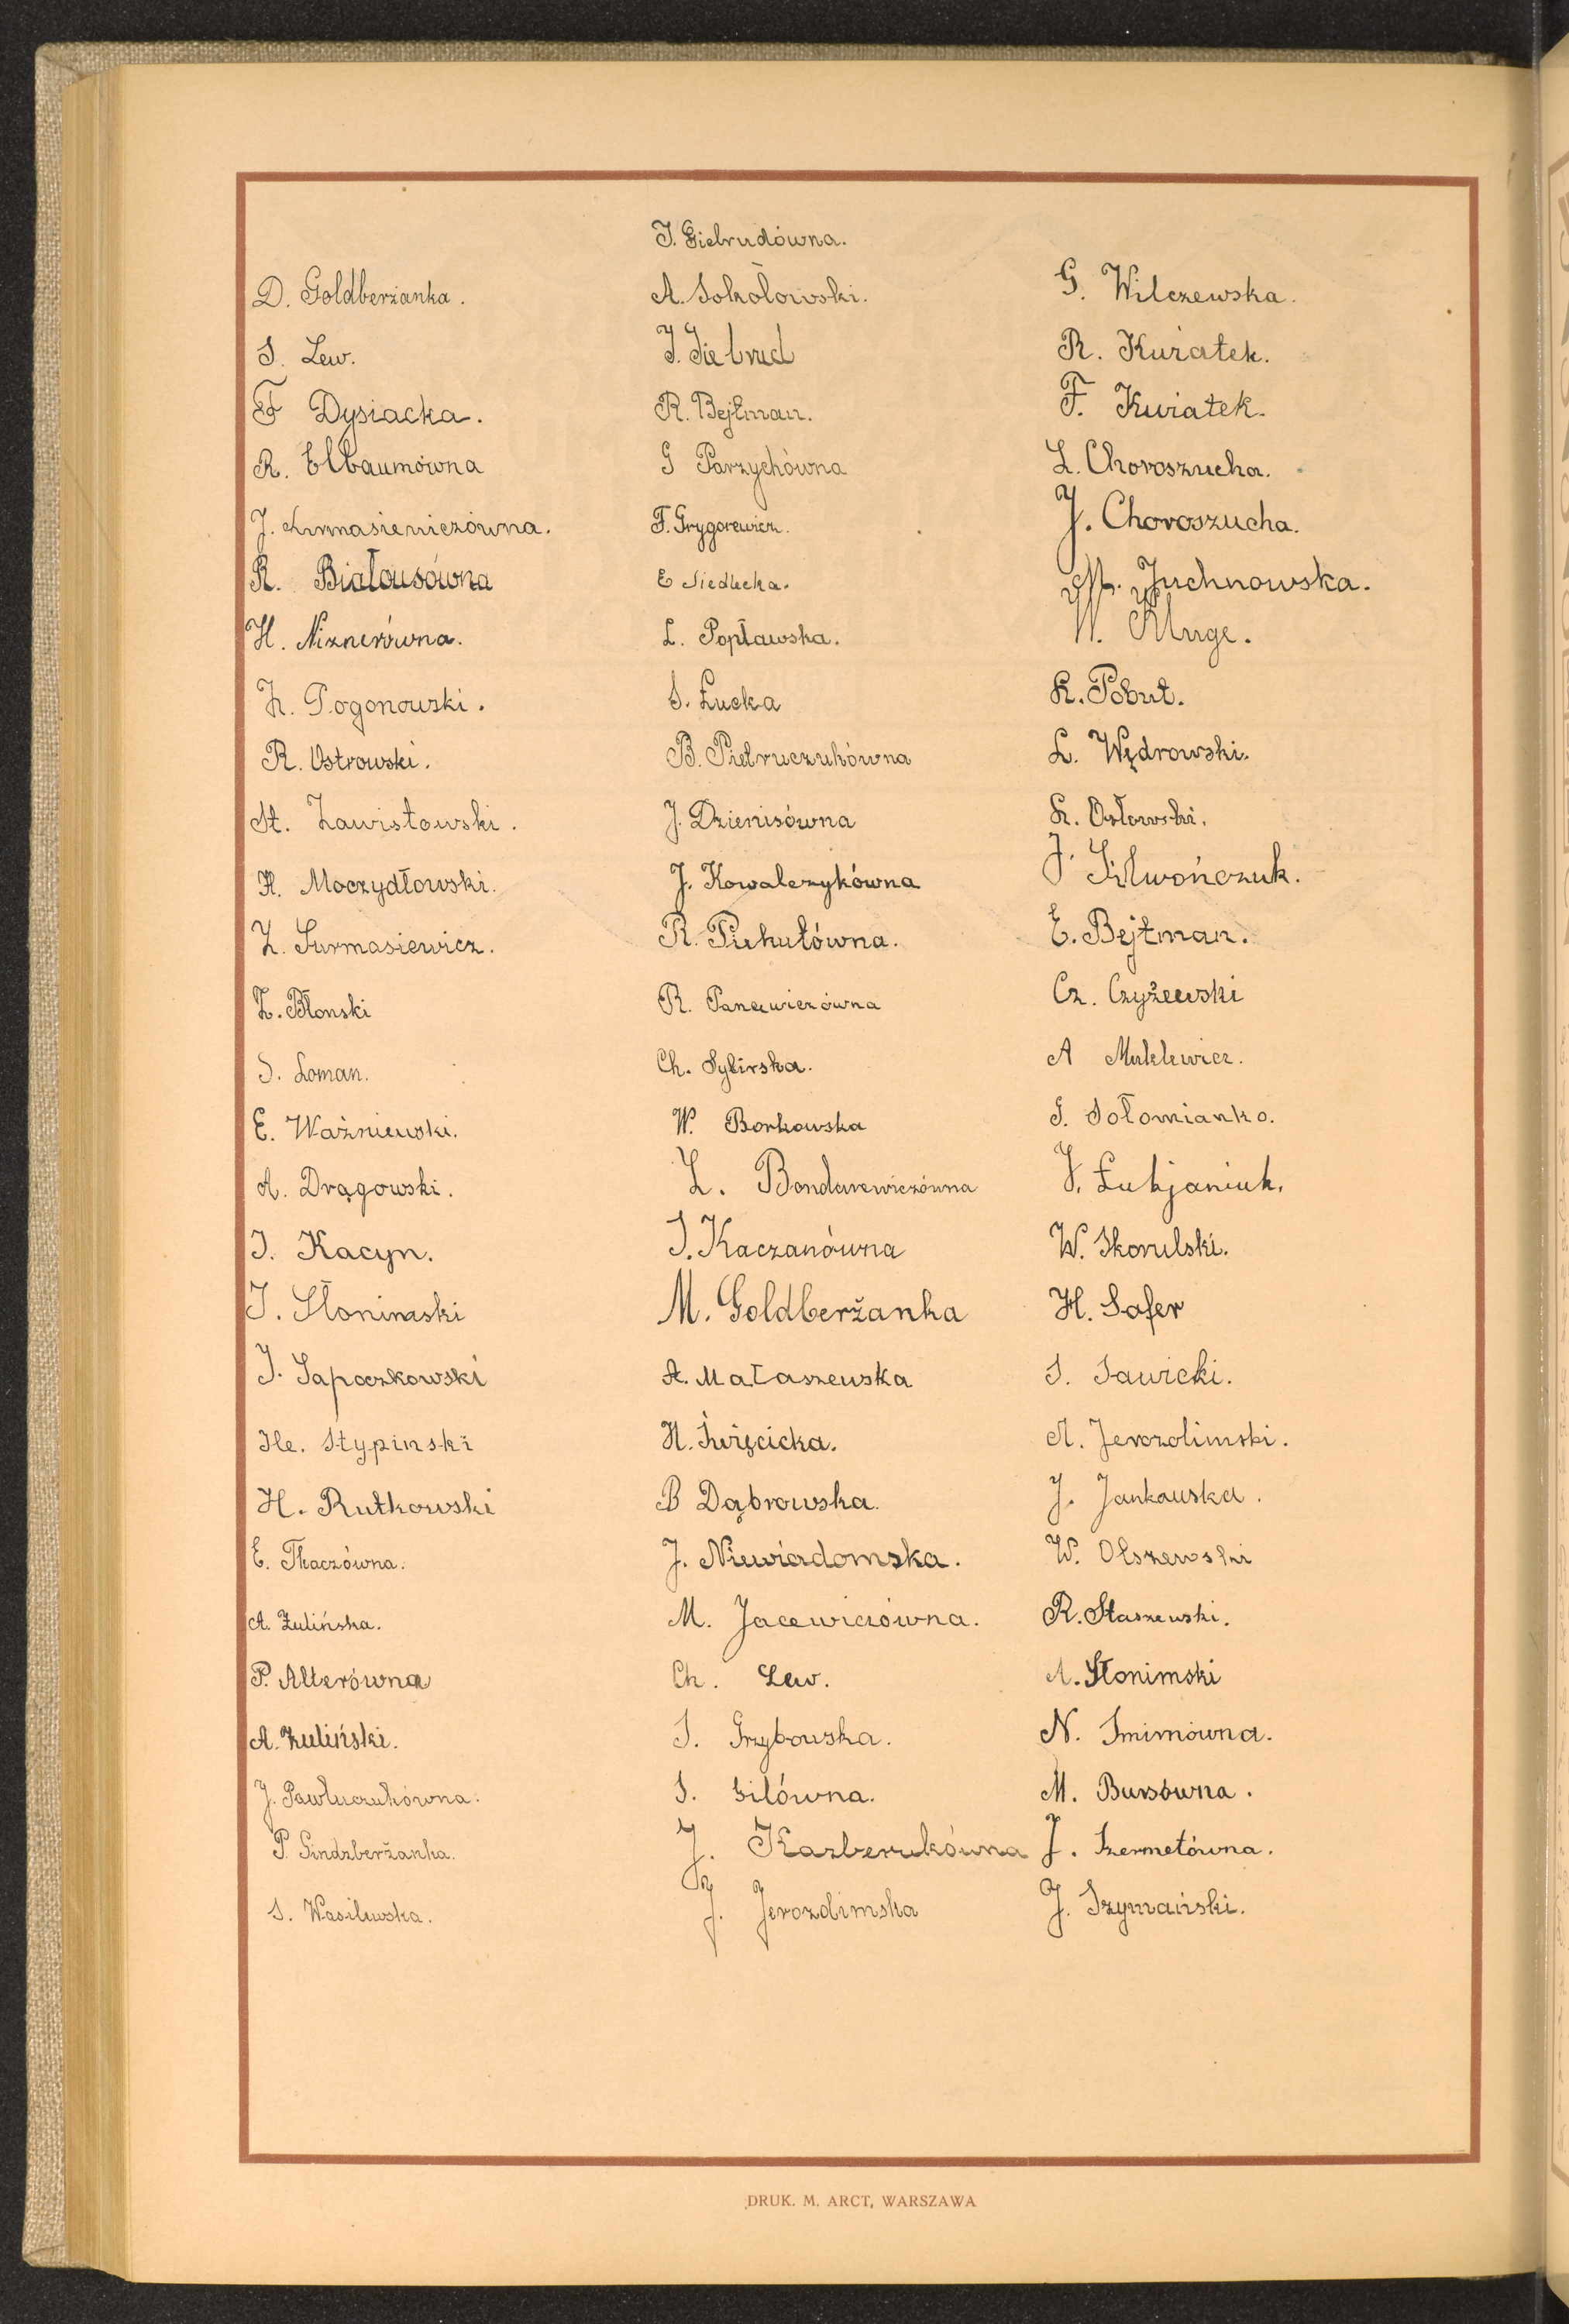 D. Goldberżanka.
S. Lew.
F Dysiacka.
R. Elbaumówna
J. Surmasiewiczówna.
R. Białousówna
H. Niznerówna.
Z. Pogonowski.
R. Ostrowski.
St. Zawistowski.
H. Moczydłowski.
Z. Surmasiewicz.
Z. Błonski
S. Loman.
E. Waźniewski.
A. Drągowski.
I. Kacyn.
I. Słonimski
I. Sapoczkowski
He. Stypinski
H. Rutkowski
E. Tkaczówna.
A. Żulińska.
P. Alterówna
A. Żuliński.
J. Pawluczukówna.
P. Gindzberżanka.
S. Wasilewska.
I. Gielrudówna.
A. Sokołowski.
I. Gielrud
R. Bejtman.
G Parzychówna
F. Grygorewicz.
E Siedlecka.
L. Popławska.
S. Łucka
B. Pietruczukówna
J. Dzienisówna
J. Kowalczykówna
R. Piekutówna.
R. Panewiczówna
Ch. Sybirska.
W. Borkowska
L. Bondarewiczówna
I. Kaczanówna
M. Goldberżanka
A. Mataszewska
H. Święcicka.
B Dąbrowska.
J. Niewiadomska.
M. Jacewiczówna.
Ch. Lew.
S. Grzybowska.
S. Gilówna.
J. Kazberukówna
J. Jerozolimska
G. Wilczewska.
R. Kurałek.
F. Kwiatek.
L. Choroszucha.
J. Choroszucha.
M. Juchnowska.
W. Kluge.
K. Pobut.
L. Wędrowski.
K. Osłowski.
J. Silwończuk.
E. Bejtman.
Cz. Czyżewski
A
G. Sołomianko.
J. Łukjaniuk.
W. Skorulski.
H. Safer
S. Sawicki.
A. Jerozolimski.
J. Jankowska.
W. Olszewski
R. Staszewski.
A. Słonimski
N. Smimówna.
M. Bursówna.
J. Szermetówna.
J. Szymański.
DRUK. M. ARCT, WARSZAWA